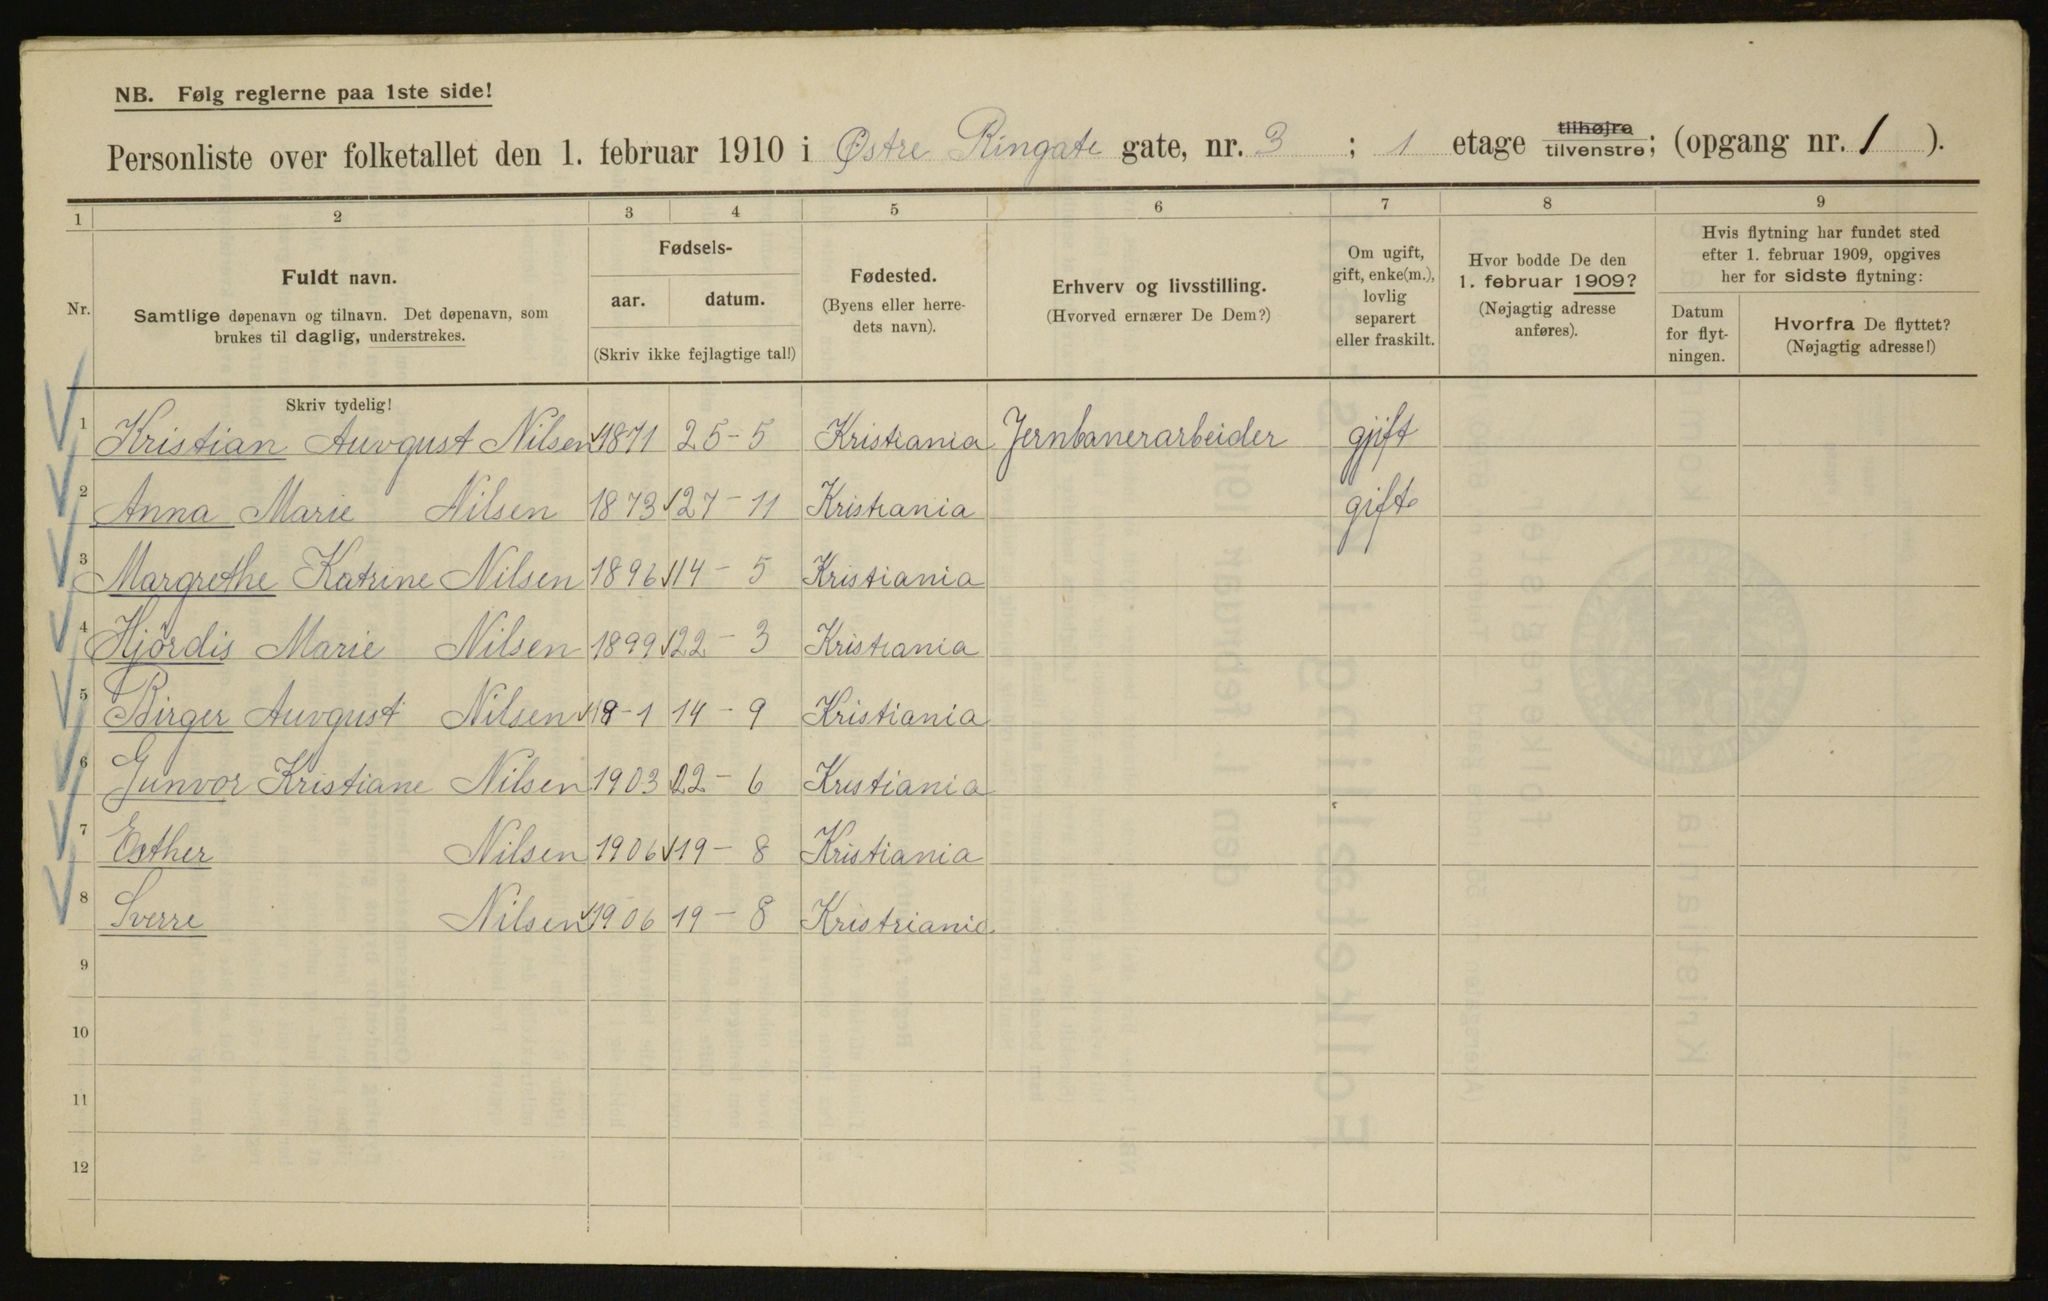 NB. Følg reglerne paa 1ste side!
Personliste over folketallet den 1. februar 1910 i Østre Ringate gate, nr. 3 ; 1 etage tilhøjre tilvenstre; (opgang nr. 1 ).
1 2 3 4 5 6 7 8 9
Nr.
Fuldt navn.
Samtlige døpenavn og tilnavn. Det døpenavn, som
brukes til daglig, understrekes.
Fødsels-
aar. datum.
(Skriv ikke fejlagtige tal!)
Fødested.
(Byens eller herre-
dets navn).
Erhverv og livsstilling.
(Hvorved ernærer De Dem?)
Om ugift,
gift, enke(m.),
lovlig
separert
eller fraskilt.
Hvor bodde De den
1. februar 1909?
(Nøjagtig adresse
anføres).
Hvis flytning har fundet sted
efter 1. februar 1909, opgives
her for sidste flytning:
Datum
for flyt-
ningen.
Hvorfra De flyttet?
(Nøjagtig adresse!)
Skriv tydelig!
1 Kristian Auvgust Nilsen 1871 25-5 Kristiania Jernbanerarbeider gjift
2 Anna Marie Nilsen 1873 27-11 Kristiania gifte
3 Margrethe Katrine Nilsen 1896 14-5 Kristiania
4 Hjördis Marie Nilsen 1899 22-3 Kristiania
5 Birger Auvgust Nilsen 14-9 Kristiania
6 Gunvor Kristiane Nilsen 1903 22-6 Kristiania
7 Esther Nilsen 1906 19-8 Kristiania
8 Sverre Nilsen 1906 19-8 Kristriania
9
10
11
12